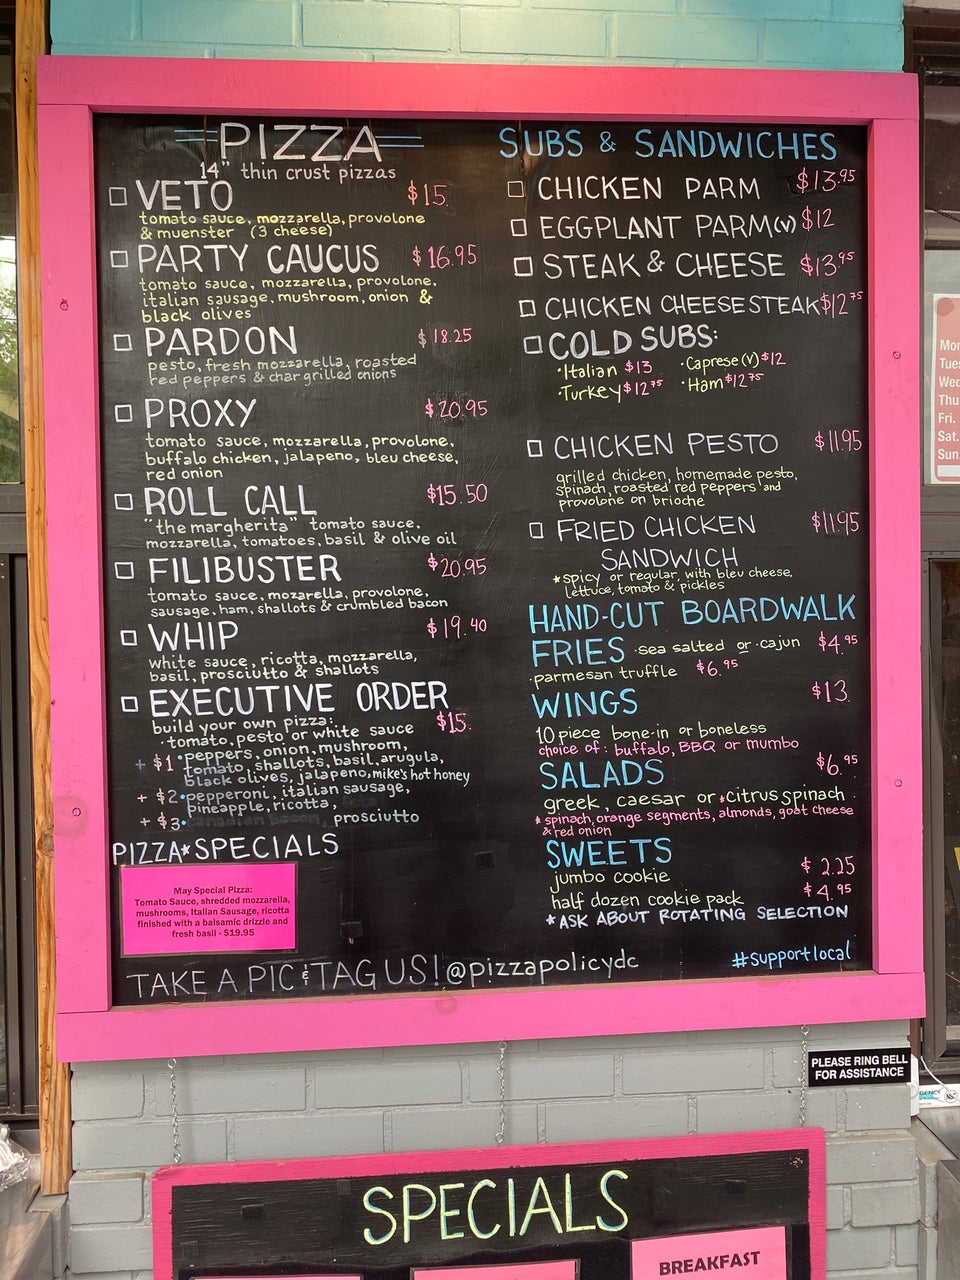 PIZZA
14" thin crust pizzas
VETO $15.
tomato sauce, mozzarella, provolone
& muenster (3 cheese)
PARTY CAUCUS $16.95
tomato sauce, mozzarella, provolone,
italian sausage, mushroom, onion &
black olives
PARDON $18.25
pesto, fresh mozzarella, roasted
red peppers & chargrilled onions
PROXY $20.95
tomato sauce, mozzarella, provolone,
buffalo chicken, jalapeno, bleu cheese,
red onion
ROLL CALL $15.50
"the margherita" tomato sauce,
mozzarella, tomatoes, basil & olive oil
FILIBUSTER $20.95
tomato sauce, mozarella, provolone,
sausage, ham, shallots & crumbled bacon
WHIP $19.40
white sauce, ricotta, mozzarella,
basil, prosciutto & shallots
EXECUTIVE ORDER $15.
build your own pizza:
·tomato, pesto or white sauce
+ $1 •peppers, onion, mushroom,
tomato, shallots, basil, arugula,
black olives, jalapeno, mike's hot honey
+ $2 •pepperoni, italian sausage,
pineapple, ricotta,
+ $3• prosciutto
PIZZA*SPECIALS
May Special Pizza:
Tomato Sauce, shredded mozzarella,
mushrooms, Italian Sausage, ricotta
finished with a balsamic drizzle and
fresh basil - $19.95
SUBS & SANDWICHES
CHICKEN PARM $13.95
EGGPLANT PARM(v) $12
STEAK & CHEESE $13.95
CHICKEN CHEESESTEAK $12.75
COLD SUBS:
·Italian $13 ·Caprese (V) $12
·Turkey $12.75 ·Ham $12.75
CHICKEN PESTO $11.95
grilled chicken, homemade pesto,
spinach, roasted red peppers and
provolone on brioche
FRIED CHICKEN $11.95
SANDWICH
*spicy or regular, with bleu cheese,
lettuce, tomato & pickles
HAND-CUT BOARDWALK
FRIES ·sea salted or ·cajun $4.95
·parmesan truffle $6.95
WINGS $13
10 piece bone-in or boneless
choice of: buffalo, BBQ or mumbo
SALADS $6.95
greek, caesar or *citrus spinach
*spinach, orange segments, almonds, goat cheese
& red onion
SWEETS
jumbo cookie $2.25
half dozen cookie pack $4.95
*ASK ABOUT ROTATING SELECTION
TAKE A PIC & TAG US! @pizzapolicydc
#supportlocal
PLEASE RING BELL
FOR ASSISTANCE
SPECIALS
BREAKFAST
Thu
Fri.
Sat.
Sun.